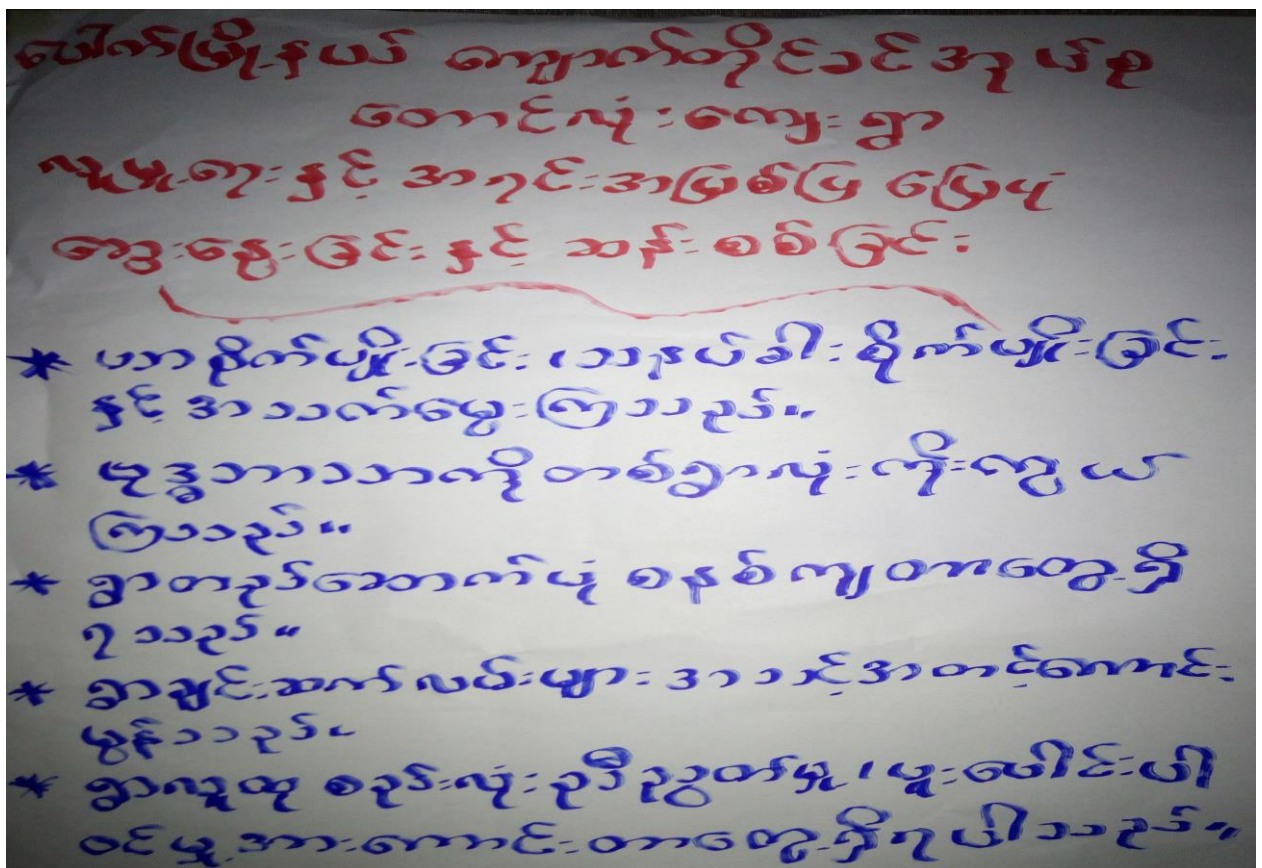 ပေါက်မြို့နယ် ကျောက်တိုင်ခင်အုပ်စု
တောင်လုံးကျေးရွာ
လူမှုရေးနှင့် အရင်းအမြစ်ပြ မြေပုံ
ဆွေးနွေးခြင်းနှင့် ဆန်းစစ်ခြင်း
* ယာစိုက်ပျိုးခြင်း၊ သနပ်ခါးစိုက်ပျိုးခြင်း
နှင့် အသက်မွေးကြသည်။
* ဗုဒ္ဓဘာသာကို တစ်ရွာလုံး ကိုးကွယ်
ကြသည်။
* ရွာတည်ဆောက်ပုံ စနစ်ကျတာတွေ့ရှိ
ရသည်။
* ရွာချင်းဆက်လမ်းများ အသင့်အတင့်ကောင်း
မွန်သည်။
* ရွာလူထု စည်းလုံးညီညွတ်မှု၊ ပူးပေါင်းပါ
ဝင်မှု အားကောင်းတာတွေ့ရှိရပါသည်။